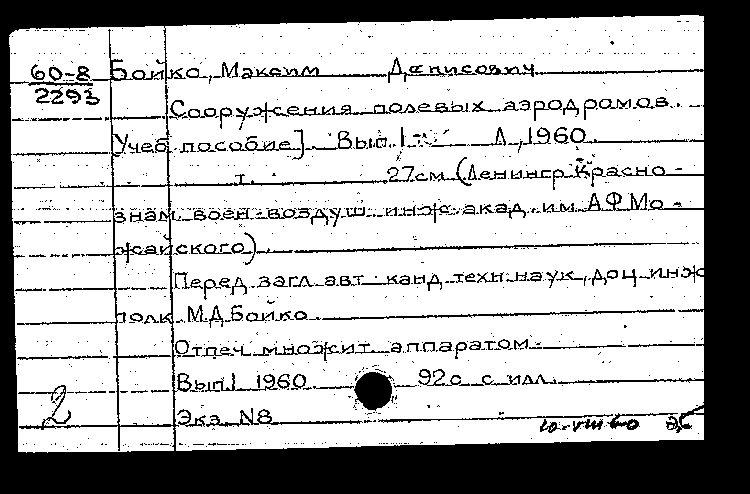 60-8 Бойко, Максим Денисович
2293
Сооружения полевых аэродромов.
[Учеб. пособие]. Вып. 1- Л., 1960.
т. 27см. (Ленингр. Красно-
знам. воен.-воздуш. инж. акад. им. А.Ф.Мо-
жайского).
Перед загл. авт.: канд. техн. наук, доц. инж.
полк. М.Д.Бойко.
Отпеч. множит. аппаратом.
Вып.1 1960. 92с. с илл.
2 Экз. N8
10-VIII 60